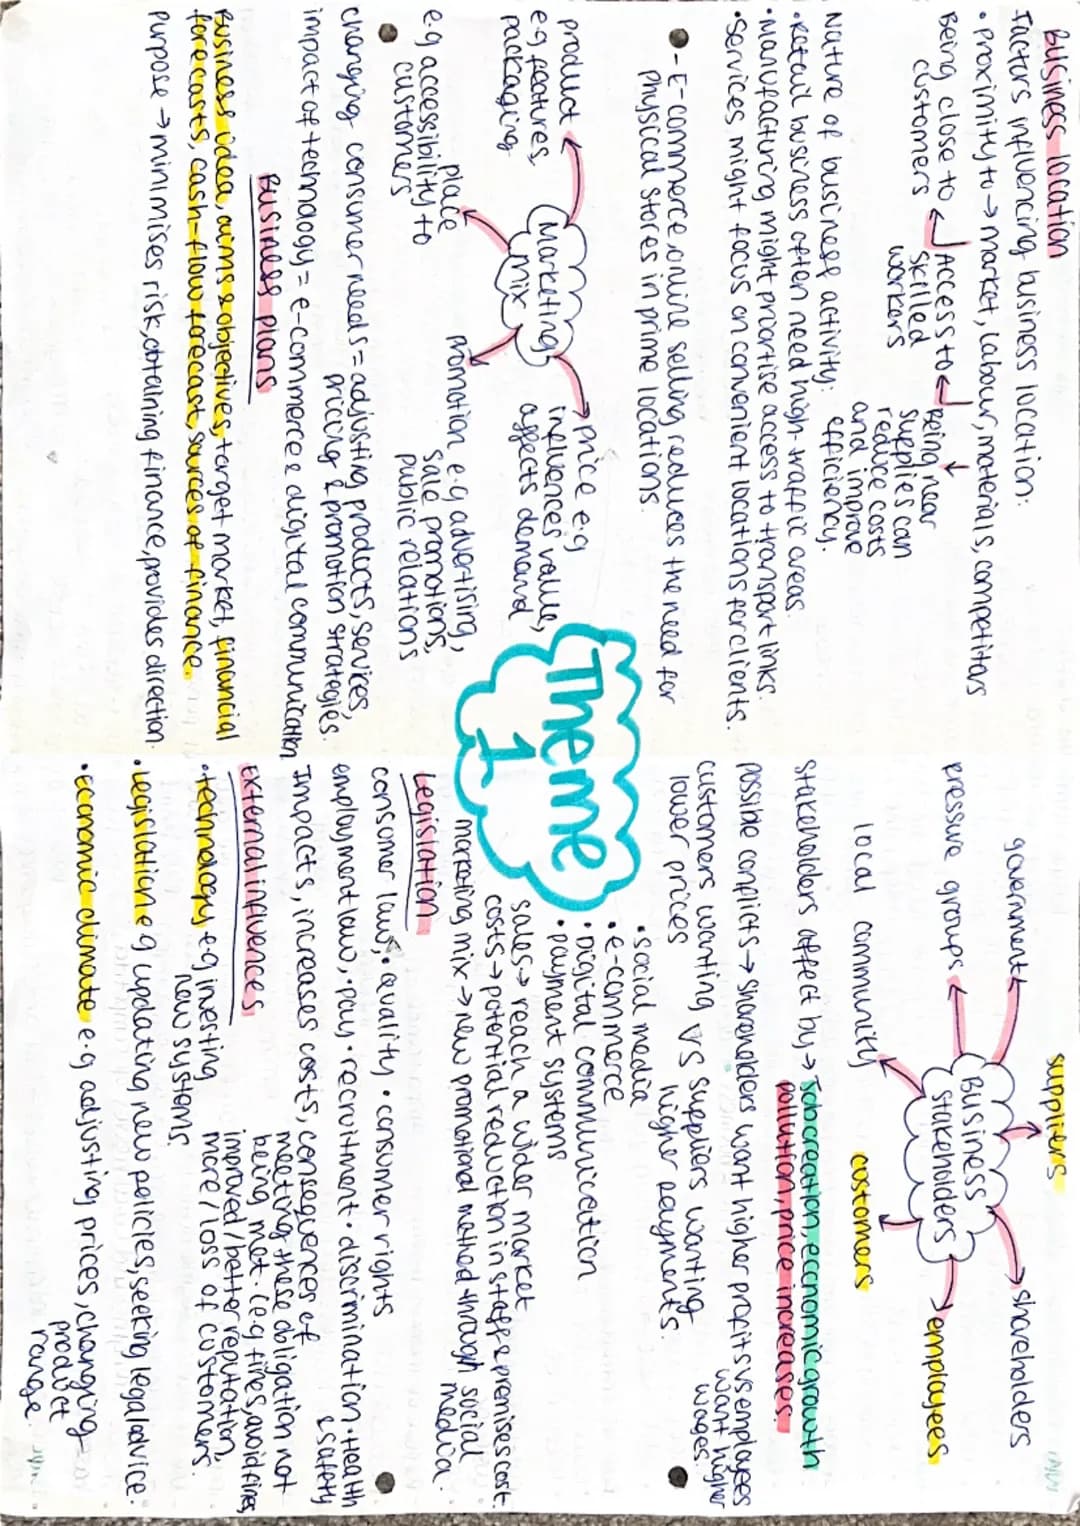 Business location
Factors influencing business location:
• proximity to → market, labour, materials, competitors
Being close to
customers
Access to
skilled
workers
Being near
supplies can
reduce costs
and improve
efficiency.
Nature of business activity:
• Retail business often need high-traffic areas.
• Manufacturing might priortise access to transport links.
• Services might focus on convenient locations for clients.
- E-commerce, online selling reduces the need for
physical stores in prime locations.
Marketing
mix
product
e.g features,
packaging
price e.g
influences value,
affects demand
place
e.g accessibility to
customers
promotion e.g advertising,
sale promotions,
public relations
changing consumer needs = adjusting products, services,
pricing & promotion strategies.
impact of technology = e-commerce & digital communication
Business plans
Business idea, aims & objectives, target market, financial
forecasts, cash-flow forecast, sources of finance.
Purpose → minimises risk, obtaining finance, provides direction.
Theme
1
suppliers
government
shareholders
pressure groups
Business
stakeholders
employees
local community
customers
Stakeholders affect by → Job creation, economic growth
pollution, price increases.
possible conflicts → shareholders want higher profits vs employees
want higher
wages.
customers wanting vs suppliers wanting
lower prices higher payments.
• social media
• e-commerce
• Digital communication
• payment systems
sales → reach a wider market
costs → potential reduction in staff & premises cost.
marketing mix → new promotional method through social
media.
Legislation
consomer laws, • quality • consumer rights
employment law, • pay • recruitment • discrimination • health
& safety
Impacts, increases costs, consequences of
meeting these obligation not
being met. (e.g fines, avoid fines,
improved/better reputation,
more/loss of customers.
External influences
• technology e.g investing
new systems.
• Legislation e.g updating new policies, seeking legal advice.
• Economic climate e.g adjusting prices, changing
product
range.